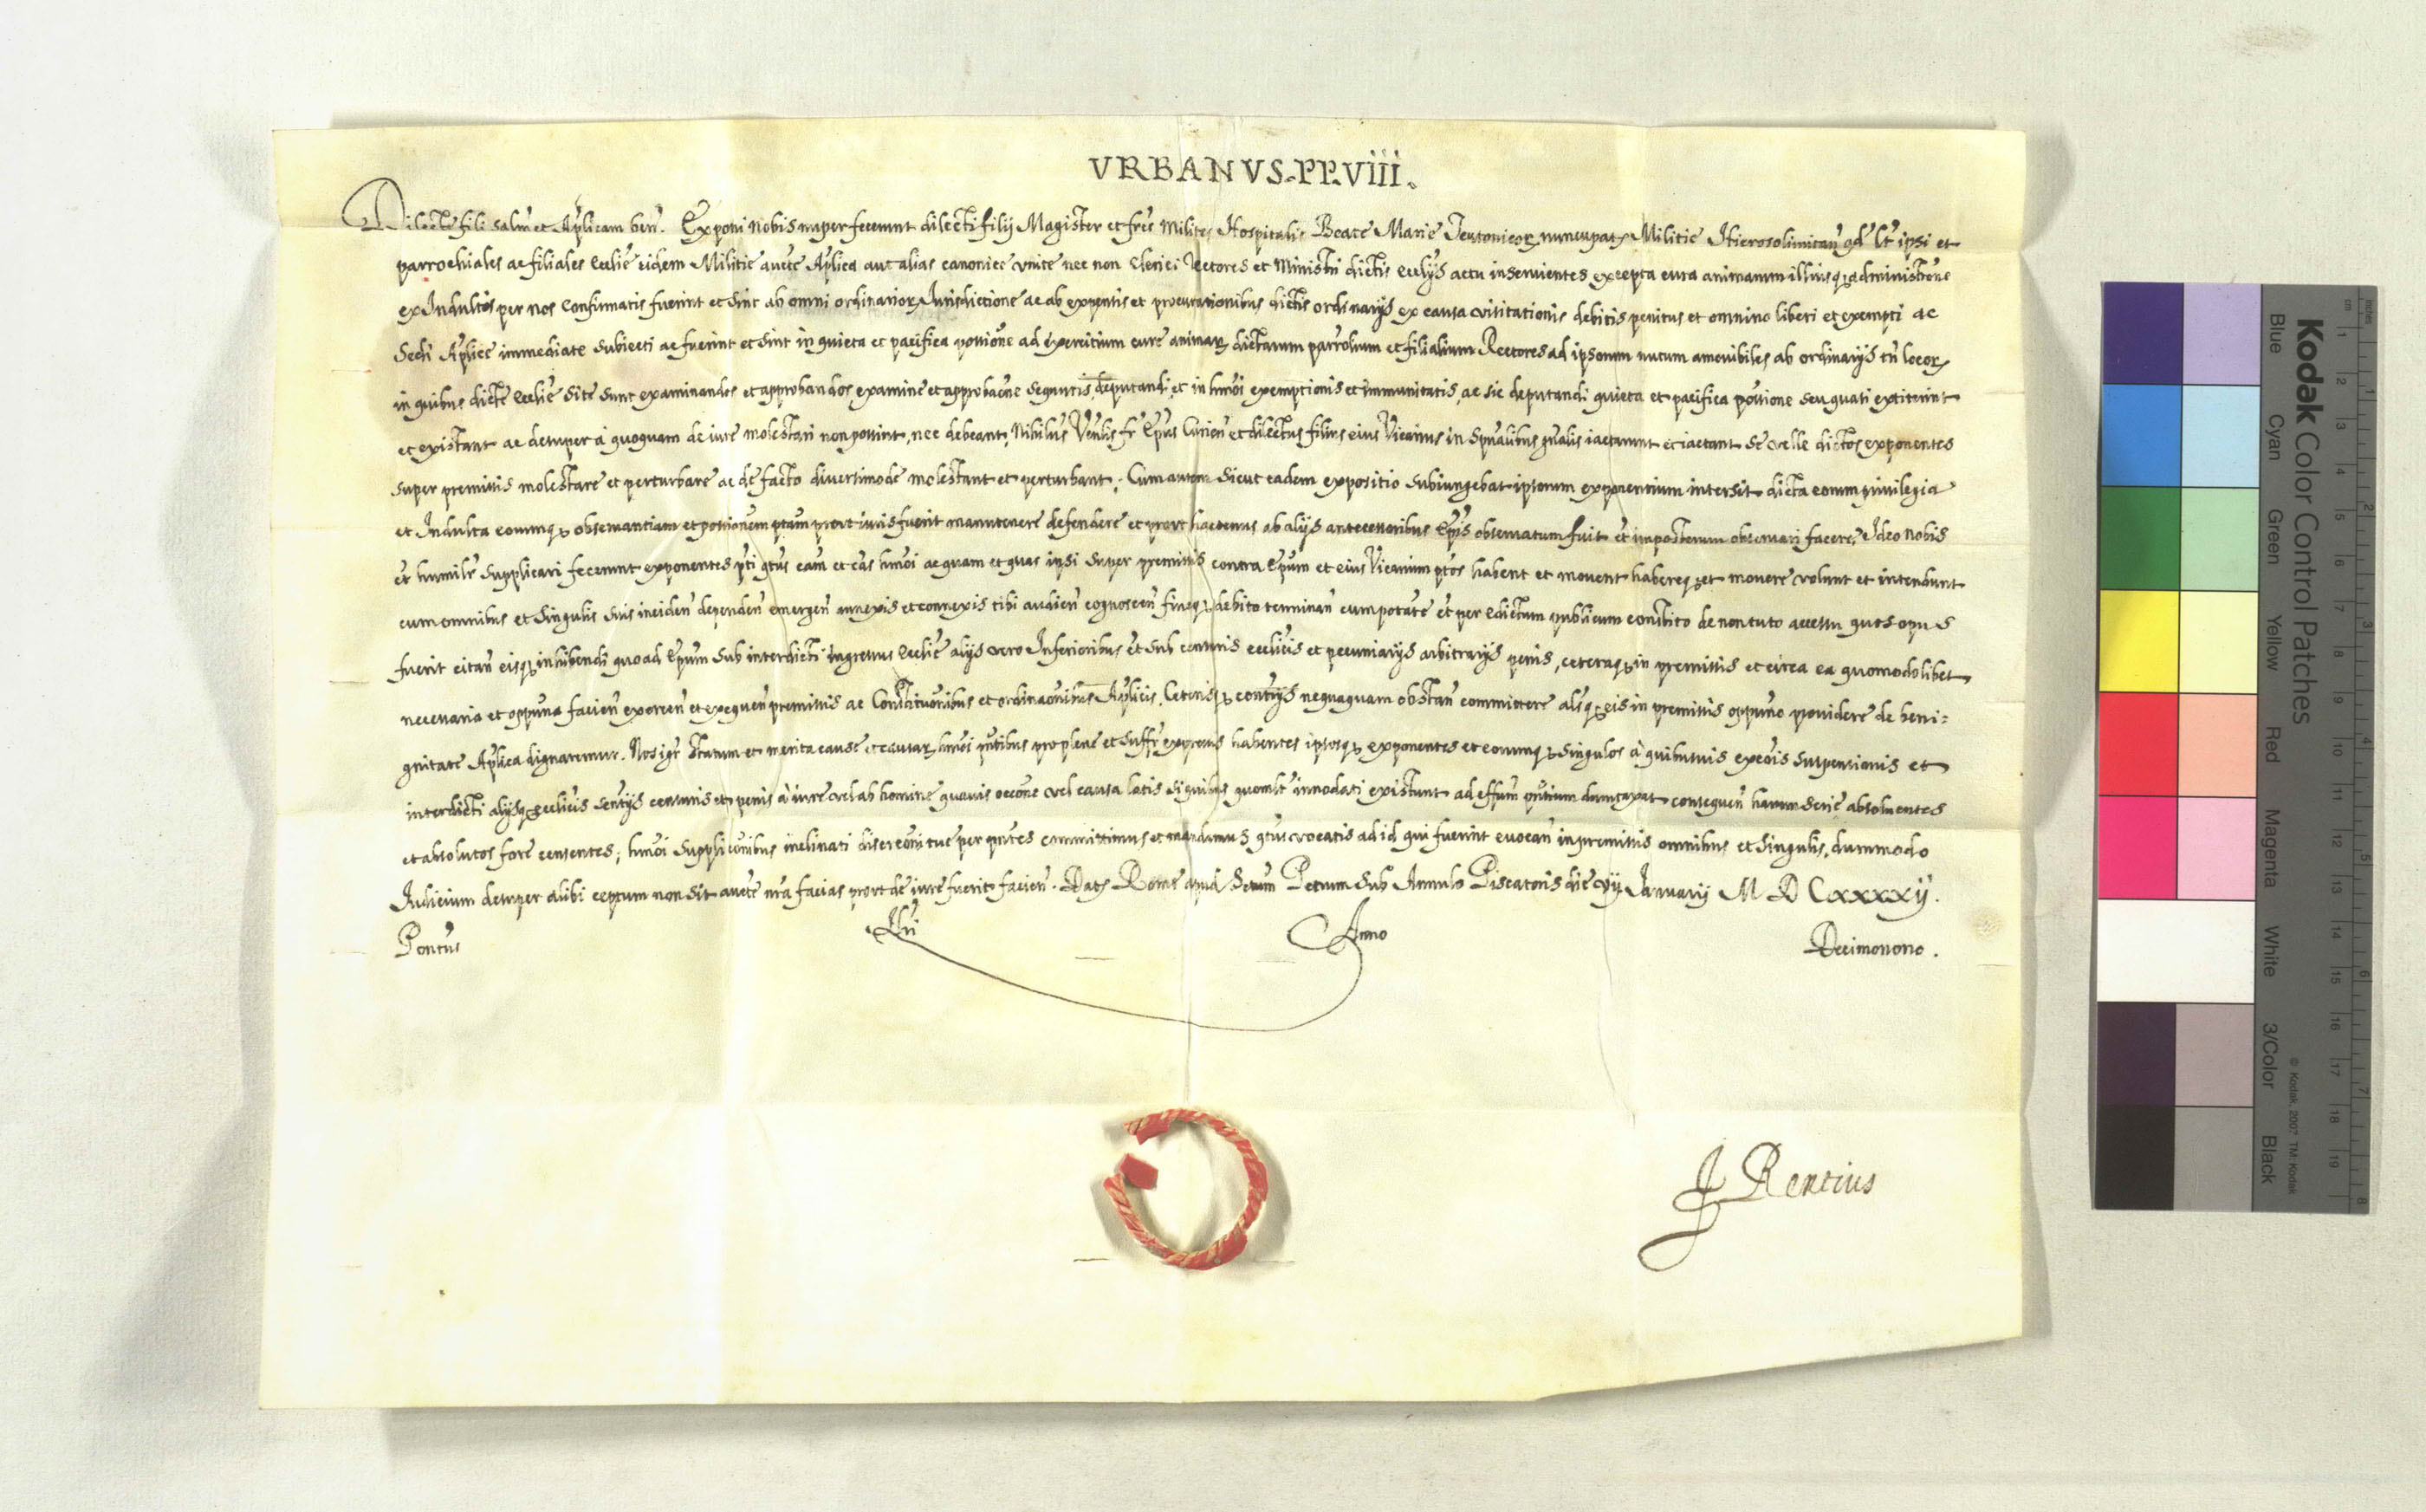 VRBANVS.PP.VIII.
Dilecte fili salm et Aplicam ben. Exponi nobis nuper fecerunt dilecti filij Magister et frēs Milites Hospitalis Beate Marie Teutonicor nuncupat Militie Hierosolimitan qd lt ipsi et
parrochiales ac filiales Ecclie eidem Militie aucte Aplica aut alias canonice vnite nec non Clerici Rectores et Ministri dictis Ecclijs actu inseruientes excepta cura animarum illiusq administrone
ex Indultis per nos Confirmatis fuerint et sint ab omni ordinarior Jurisdictione ac ab expensis et procurationibus dictis ordinarijs ex causa visitationis debitis penitus et omnino liberi et exempti ac
Sedi Aplice immediate subiecti ac fuerint et sint in quieta et pacifica possione ad exercitium cure animar dictarum parrolium et filialium Rectores ad ipsorum nutum amouibiles ab ordinarijs tn locor
in quibus dicte Ecclie site sunt examinandos et approbandos examine et approbaone sequutis deputandi, et in hmoi exemptionis et immunitatis, ac sic deputandi quieta et pacifica possione seu quasi extiterint
et existant ac desuper à quoquam de iure molestari non possint, nec debeant, Nihilus Venlis fr Epus Curien et dilectus filius eius Vicarius in spualibus gnalis iactarunt et iactant se velle dictos exponentes
super premissis molestare et perturbare ac de facto diuersimode molestant et perturbant. Cum autem sicut eadem expositio subiungebat ipsorum exponentium intersit dicta eorum priuilegia
et Indulta eorumq obseruantiam et possionem ptam prout iuris fuerit manutenere defendere et prout hactenus ab alijs antecessoribus Epis obseruatum fuit et imposterum obseruari facere, Ideo nobis
et humilr supplicari fecerunt exponentes pti qtus eam et eas hmoi ac quam et quas ipsi super premissis contra Epum et eius Vicarium ptos habent et mouent habereq et mouere volunt et intendunt
cum omnibus et singulis suis inciden dependen emergen annexis et connexis tibi audien cognoscen fineq debito terminan cum potate et per edictum publicum constito de non tuto accessu quos opus
fuerit citan eisq inhibendi quoad Epum sub interdicti ingressus Ecclie alijs vero Inferioribus et sub censuris ecclicis et pecuniarijs arbitrarijs penis, ceteraq in premissis et circa ea quomodolibet
necessaria et oppuna facien exercen et exequen premissis ac Constitutionibus et ordinaonibus Aplicis, Ceterisq contrijs nequaquam obstan committere alisq eis in premissis oppune prouidere de beni=
gnitate Aplica dignaremur. Nos igr statum et merita cause et causar hmoi pntibus pro plene et suffr expressis habentes ipsosq exponentes et eorumq singulos à quibusuis excois suspensionis et
interdicti alijsq ecclicis sentijs censuris et penis à iure vel ab homine quauis occone vel causa latis si quibus quomlt innodati existunt ad effum pntium dumtaxat consequen harum serie absoluentes
et absolutos fore censentes, hmoi supplicōnibus inclinati discreōni tue per pntes committimus et mandamus qtus vocatis ad id qui fuerint euocan in premissis omnibus et singulis, dummodo
Judicium desuper alibi ceptum non sit aucte nra facias prout de iure fuerit facien. Dat Rome apud Sctum Petrum sub Annulo Piscatoris die vij Januarij M D Cxxxxij.
Pontus Nri Anno Decimonono.
J Rentius
Kodak Color Control Patches
Blue Cyan Green Yellow Red Magenta White 3/Color Black
© Kodak, 2007 TM: Kodak
cm 1 2 3 4 5 6 7 8 9 10 11 12 13 14 15 16 17 18 19
inches 1 2 3 4 5 6 7 8